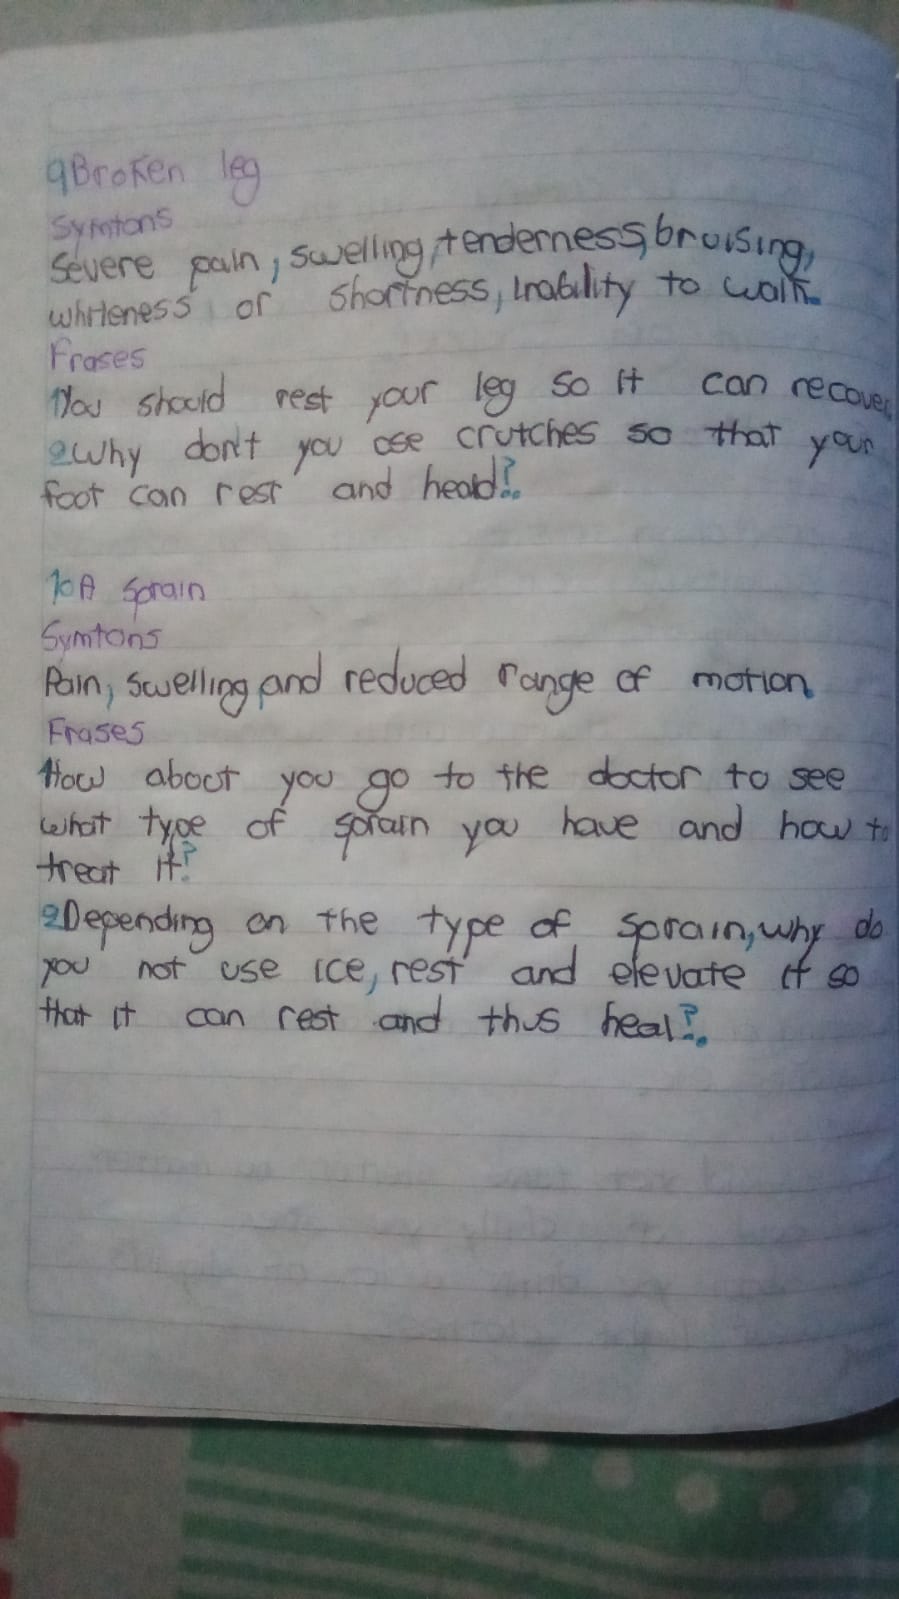 9 Broken leg
Symtons
Severe pain, swelling, tenderness, bruising,
whiteness or shortness, inability to walk.
Frases
1 You should rest your leg so it can recover
2 Why don't you use crutches so that your
foot can rest and heald?.
10 A sprain
Symtons
Pain, swelling, and reduced range of motion.
Frases
1 How about you go to the doctor to see
what type of sprain you have and how to
treat it?
2 Depending on the type of sprain, why do
you not use ice, rest and elevate it so
that it can rest and thus heal?.